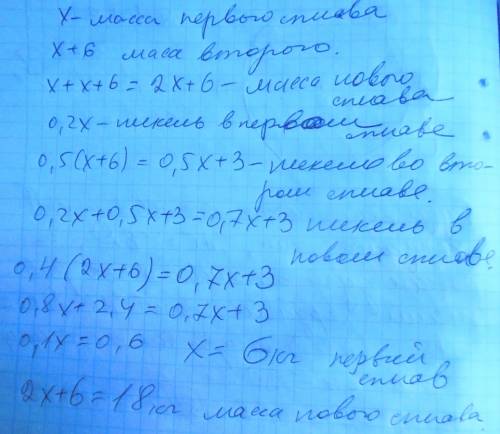 x – масса первого сплава
x+6 маса второго.
x+x+6 = 2x+6 – масса нового
сплава
0,2x – никель в первом
сплаве
0,5(x+6) = 0,5x+3 – никель во вто-
ром сплаве.
0,2x+0,5x+3=0,7x+3 никель в
новом сплаве.
0,4(2x+6)=0,7x+3
0,8x+2,4=0,7x+3
0,1x=0,6 x=6кг первый
сплав
2x+6=18кг масса нового сплава